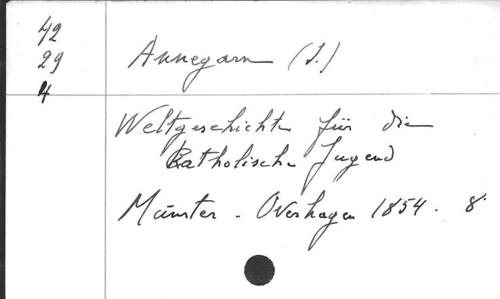 42
29
4
Annegarn (J.)
Weltgeschichte für die
Katholische Jugend
Münster - Overhagen 1854. 8°